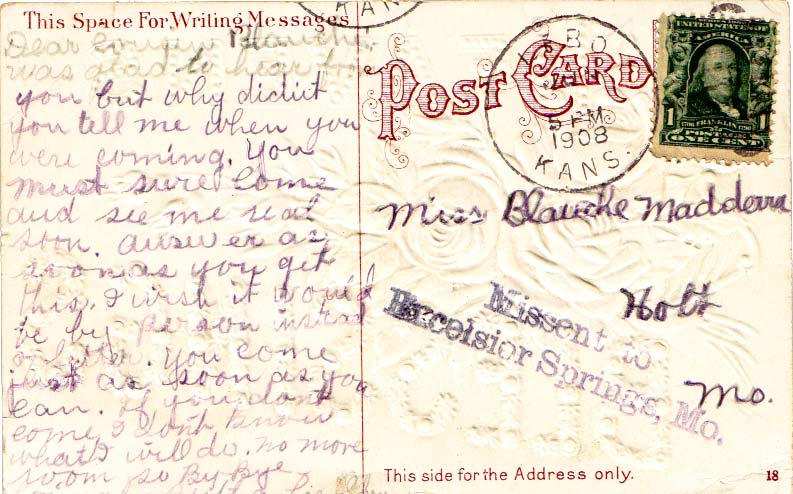 This Space For Writing Messages
KANS
Dear Cousin Blanche.
was glad to hear from
you but why didn't
you tell me when you
were coming. You
must sure come
and see me real
soon. answer as
soon as you get
this. I wish it would
be by person instead
of letter. You come
just as soon as you
can. If you don't
come I don't know
what I will do. no more
room so By Bye
POST CARD
5 PM
1908
KANS.
UNITED STATES OF
AMERICA
1706 FRANKLIN 1790
1 POSTAGE 1
ONE CENT
Miss Blanche Maddera
Holt
Mo.
Missent to
Excelsior Springs, Mo.
This side for the Address only.
18